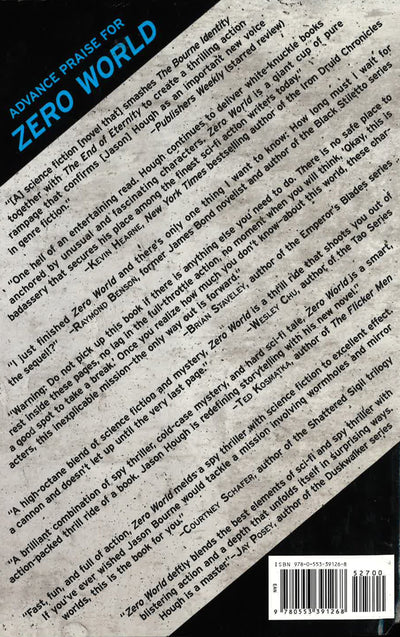 ADVANCE PRAISE FOR
ZERO WORLD
"[A] science fiction [novel that] smashes The Bourne Identity
together with The End of Eternity to create a thrilling action
rampage that confirms [Jason] Hough as an important new voice
in genre fiction."
—Publishers Weekly (starred review)
"One hell of an entertaining read. Hough continues to deliver white-knuckle books
anchored by unusual and fascinating characters, Zero World is a giant cup of pure
badassery that secures his place among the finest sci-fi action writers today."
—Kevin Hearne, New York Times bestselling author of the Iron Druid Chronicles
"I just finished Zero World and there's only one thing I want to know: How long must I wait for
the sequel?"
—Raymond Benson, former James Bond novelist and author of the Black Stiletto series
"Warning: Do not pick up this book if there is anything else you need to do. There is no safe place to
rest inside these pages, no lag in the full-throttle action, no moment when you will think, 'Okay, this is
a good spot to take a break.' Once you realize how much you don't know—about this world, these char-
acters, this inexplicable mission—the only way out is forward."
—Brian Staveley, author of the Emperor's Blades series
"A high-octane blend of science fiction and mystery, Zero World is a thrill ride that shoots you out of
a cannon and doesn't let up until the very last page."
—Wesley Chu, author of the Tao Series
"A brilliant combination of spy thriller, cold-case mystery, and hard sci-fi tale, Zero World is a smart,
action-packed thrill ride of a book. Jason Hough is redefining storytelling with his new novel."
—Ted Kosmatka, author of The Flicker Men
"Fast, fun, and full of action, Zero World melds a spy thriller with science fiction to excellent effect.
If you've ever wished Jason Bourne would tackle a mission involving wormholes and mirror
worlds, this is the book for you."
—Courtney Schafer, author of the Shattered Sigil trilogy
"Zero World deftly blends the best elements of sci-fi and spy thriller with
blistering action and a depth that unfolds itself in surprising ways.
Hough is a master." —Jay Posey, author of the Duskwalker series
ISBN 978-0-553-39126-8
52700
9 780553 391268
EAN